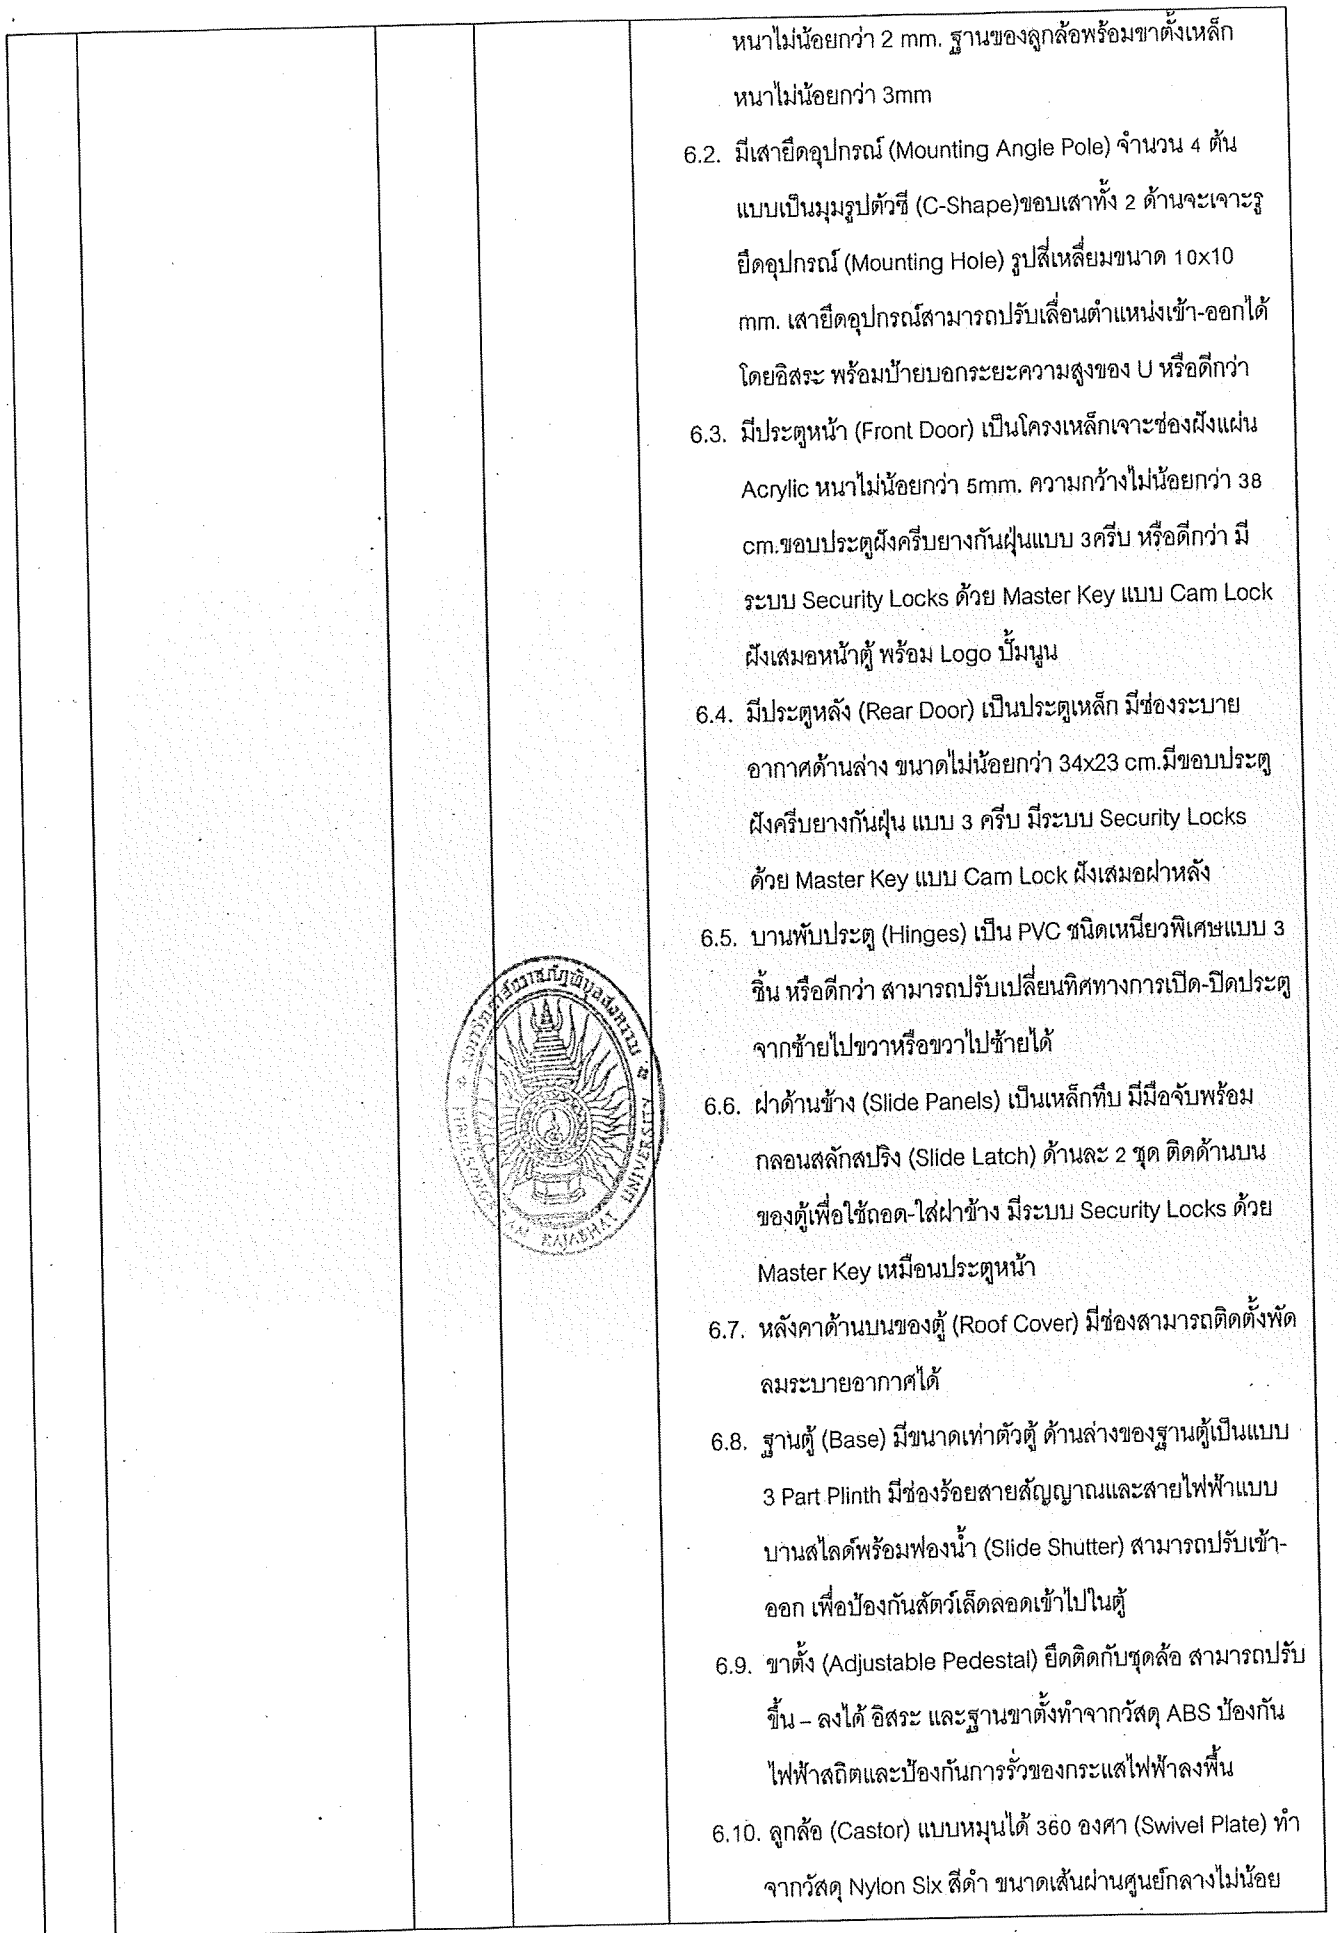 หนาไม่น้อยกว่า 2 mm. ฐานของลูกล้อพร้อมขาตั้งเหล็ก
หนาไม่น้อยกว่า 3mm
6.2. มีเสายึดอุปกรณ์ (Mounting Angle Pole) จำนวน 4 ต้น
แบบเป็นมุมรูปตัวซี (C-Shape)ขอบเสาทั้ง 2 ด้านจะเจาะรู
ยึดอุปกรณ์ (Mounting Hole) รูปสี่เหลี่ยมขนาด 10x10
mm. เสายึดอุปกรณ์สามารถปรับเลื่อนตำแหน่งเข้า-ออกได้
โดยอิสระ พร้อมป้ายบอกระยะความสูงของ U หรือดีกว่า
6.3. มีประตูหน้า (Front Door) เป็นโครงเหล็กเจาะช่องฝังแผ่น
Acrylic หนาไม่น้อยกว่า 5mm. ความกว้างไม่น้อยกว่า 38
cm.ขอบประตูฝังครีบยางกันฝุ่นแบบ 3ครีบ หรือดีกว่า มี
ระบบ Security Locks ด้วย Master Key แบบ Cam Lock
ฝังเสมอหน้าตู้ พร้อม Logo ปั๊มนูน
6.4. มีประตูหลัง (Rear Door) เป็นประตูเหล็ก มีช่องระบาย
อากาศด้านล่าง ขนาดไม่น้อยกว่า 34x23 cm.มีขอบประตู
ฝังครีบยางกันฝุ่น แบบ 3 ครีบ มีระบบ Security Locks
ด้วย Master Key แบบ Cam Lock ฝังเสมอฝาหลัง
6.5. บานพับประตู (Hinges) เป็น PVC ชนิดเหนียวพิเศษแบบ 3
ชิ้น หรือดีกว่า สามารถปรับเปลี่ยนทิศทางการเปิด-ปิดประตู
จากซ้ายไปขวาหรือขวาไปซ้ายได้
6.6. ฝาด้านข้าง (Slide Panels) เป็นเหล็กทึบ มีมือจับพร้อม
กลอนสลักสปริง (Slide Latch) ด้านละ 2 ชุด ติดด้านบน
ของตู้เพื่อใช้ถอด-ใส่ฝาข้าง มีระบบ Security Locks ด้วย
Master Key เหมือนประตูหน้า
6.7. หลังคาด้านบนของตู้ (Roof Cover) มีช่องสามารถติดตั้งพัด
ลมระบายอากาศได้
6.8. ฐานตู้ (Base) มีขนาดเท่าตัวตู้ ด้านล่างของฐานตู้เป็นแบบ
3 Part Plinth มีช่องร้อยสายสัญญาณและสายไฟฟ้าแบบ
บานสไลด์พร้อมฟองน้ำ (Slide Shutter) สามารถปรับเข้า-
ออก เพื่อป้องกันสัตว์เล็ดลอดเข้าไปในตู้
6.9. ขาตั้ง (Adjustable Pedestal) ยึดติดกับชุดล้อ สามารถปรับ
ขึ้น – ลงได้ อิสระ และฐานขาตั้งทำจากวัสดุ ABS ป้องกัน
ไฟฟ้าสถิตและป้องกันการรั่วของกระแสไฟฟ้าลงพื้น
6.10. ลูกล้อ (Castor) แบบหมุนได้ 360 องศา (Swivel Plate) ทำ
จากวัสดุ Nylon Six สีดำ ขนาดเส้นผ่านศูนย์กลางไม่น้อย
มหาวิทยาลัยราชภัฏพิบูลสงคราม
RAJABHAT UNIVERSITY